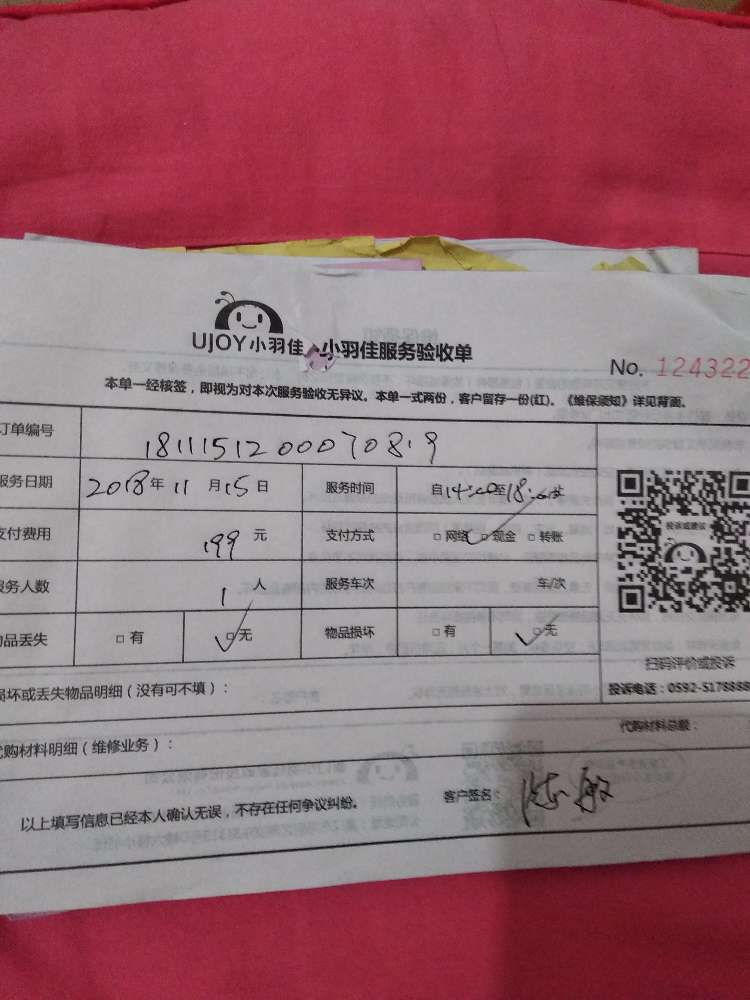 UJOY小羽佳 小羽佳服务验收单
No. 124322
本单一经核签，即视为对本次服务验收无异议。本单一式两份，客户留存一份(红)。《维保须知》详见背面。
订单编号 1811151200070819
服务日期 2018年11月15日 服务时间 自14:00至18:00
支付费用 199元 支付方式 □网络 □现金 □转账
服务人数 1人 服务车次 车/次
物品丢失 □有 □无 物品损坏 □有 □无
投诉或建议
扫码评价或投诉
投诉电话：0592-5178888
损坏或丢失物品明细（没有可不填）：
代购材料明细（维修业务）：
代购材料总额：
以上填写信息已经本人确认无误，不存在任何争议纠纷。 客户签名：